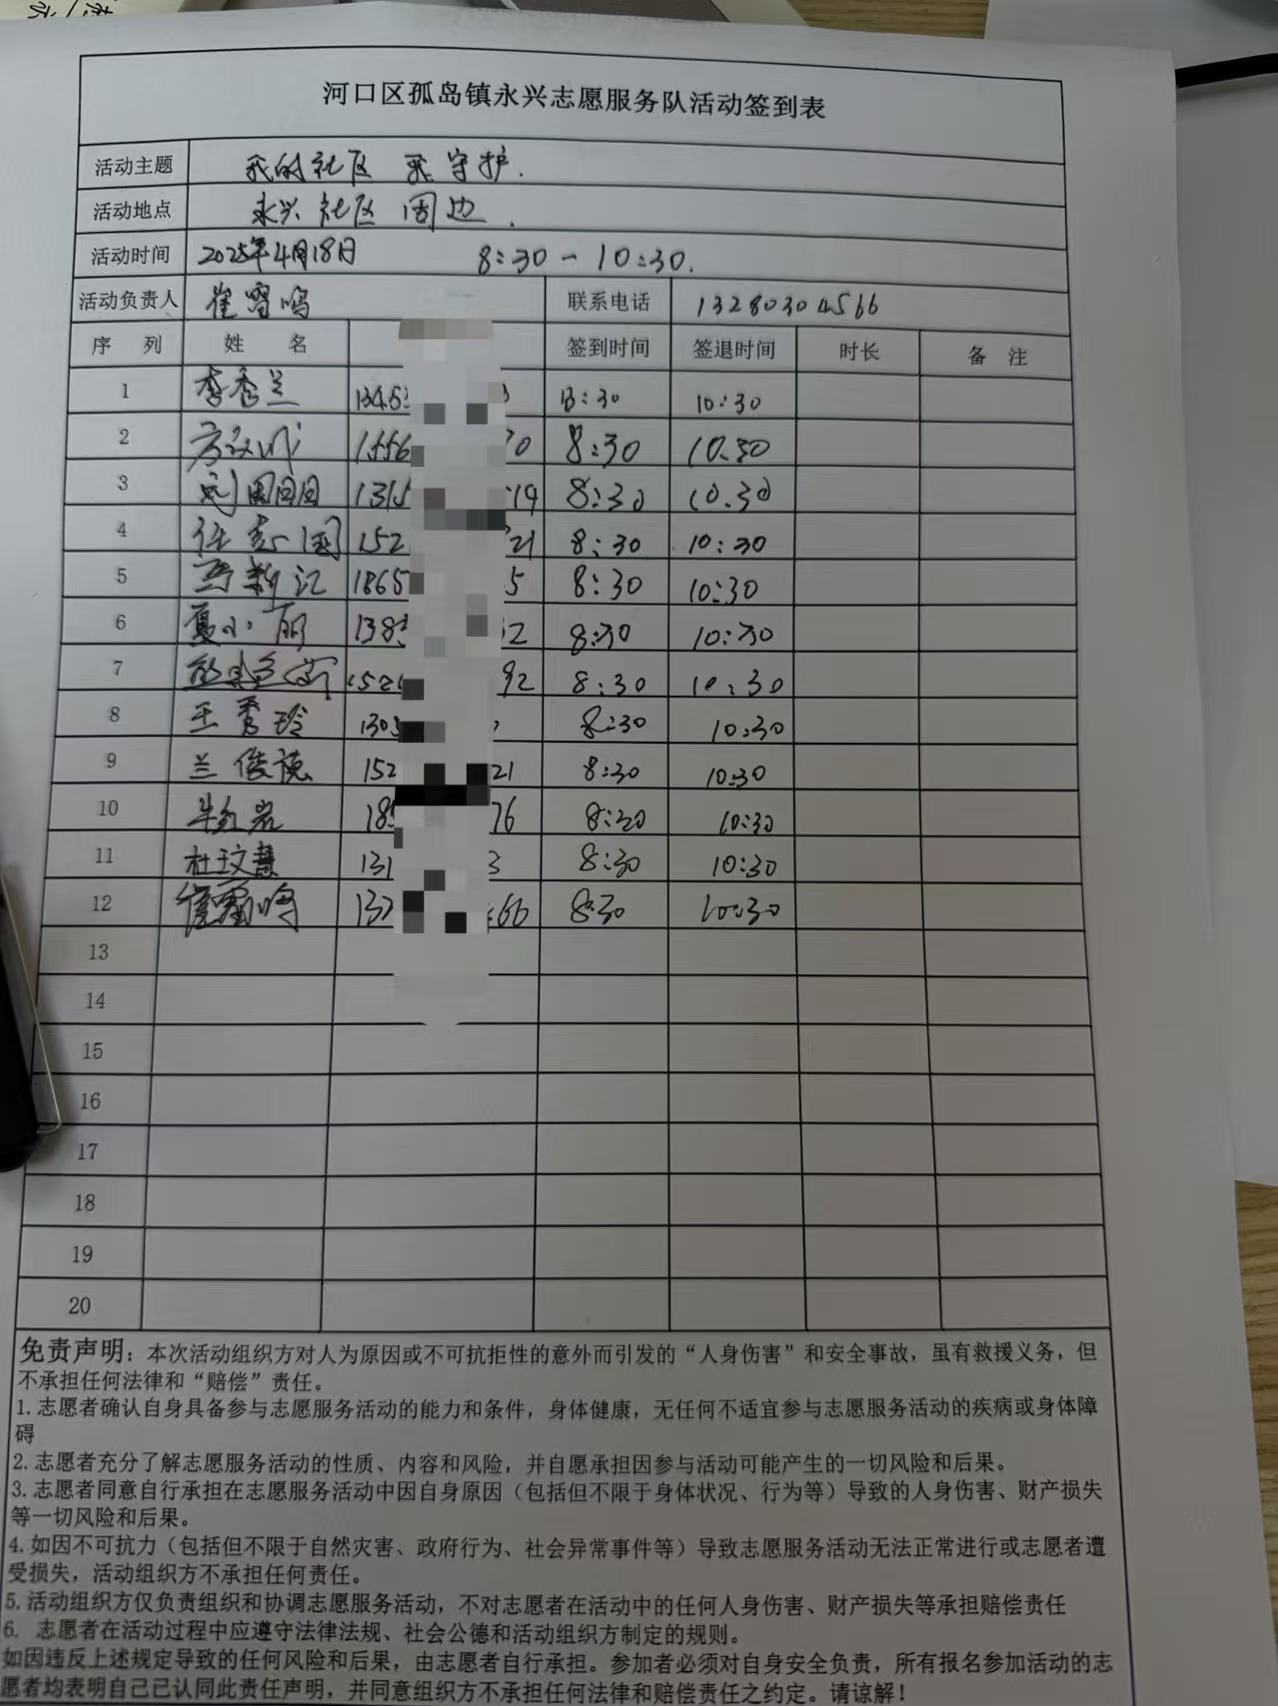 河口区孤岛镇永兴志愿服务队活动签到表
活动主题 我的社区 我守护.
活动地点 永兴社区周边.
活动时间 2025年4月18日 8:30-10:30.
活动负责人 崔雷鸣 联系电话 13280304566
序 列 姓 名 签到时间 签退时间 时长 备 注
1 李秀兰 1345 8:30 10:30
2 1556 70 8:30 10.30
3 1315 19 8:30 10.30
4 任志国 152 21 8:30 10:30
5 1865 5 8:30 10:30
6 夏小丽 138 2 8:30 10:30
7 152 92 8:30 10:30
8 王秀玲 130 8:30 10:30
9 兰俊德 152 21 8:30 10:30
10 牛红岩 18 76 8:30 10:30
11 杜文慧 131 3 8:30 10:30
12 崔雷鸣 132 66 8:30 10:30
13
14
15
16
17
18
19
20
免责声明：本次活动组织方对人为原因或不可抗拒性的意外而引发的“人身伤害”和安全事故，虽有救援义务，但
不承担任何法律和“赔偿”责任。
1.志愿者确认自身具备参与志愿服务活动的能力和条件，身体健康，无任何不适宜参与志愿服务活动的疾病或身体障
碍
2.志愿者充分了解志愿服务活动的性质、内容和风险，并自愿承担因参与活动可能产生的一切风险和后果。
3.志愿者同意自行承担在志愿服务活动中因自身原因（包括但不限于身体状况、行为等）导致的人身伤害、财产损失
等一切风险和后果。
4.如因不可抗力（包括但不限于自然灾害、政府行为、社会异常事件等）导致志愿服务活动无法正常进行或志愿者遭
受损失，活动组织方不承担任何责任。
5.活动组织方仅负责组织和协调志愿服务活动，不对志愿者在活动中的任何人身伤害、财产损失等承担赔偿责任
6. 志愿者在活动过程中应遵守法律法规、社会公德和活动组织方制定的规则。
如因违反上述规定导致的任何风险和后果，由志愿者自行承担。参加者必须对自身安全负责，所有报名参加活动的志
愿者均表明自己已认同此责任声明，并同意组织方不承担任何法律和赔偿责任之约定。请谅解！